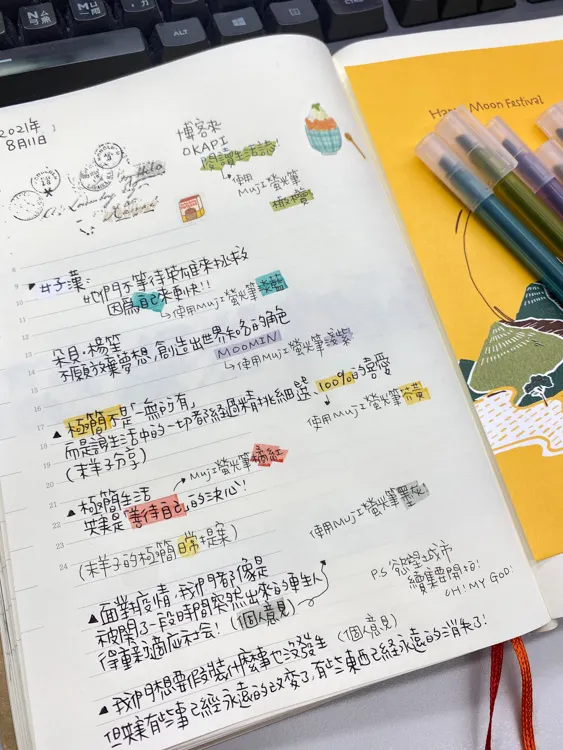 2021年
8月11日
博客來
OKAPI
閱讀生活誌
使用
MUJI螢光筆
橄欖
Hello
#女子漢:
她們不等待英雄來拯救
因為自己來更快!!
使用MUJI螢光筆
朵貝·楊笙
不願放棄夢想,創造出世界知名的角色
MOOMIN
使用MUJI螢光筆淺紫
▲極簡不是「無所有」
而是讓生活中的一切都經過精挑細選、100%的喜愛
(末羊子分享)
使用MUJI螢光筆
MUJI螢光筆橘紅
▲極簡生活
其實是「善待自己」的決心!
使用MUJI螢光筆墨灰
(末羊子的極簡日常提案)
P.S 慾望城市
續集要開拍!
OH! MY GOD!
▲面對疫情,我們都像是
被關了一段時間突然出來的畢生人
得重新適應社會!(個人意見)
▲我們想要假裝什麼事也沒發生(個人意見)
但其實有些事已經永遠的改變了,有些東西已經永遠的消失了!
Moon Festival
ALT
ALT
8
9
10
11
12
13
14
15
16
17
18
19
20
21
22
23
24